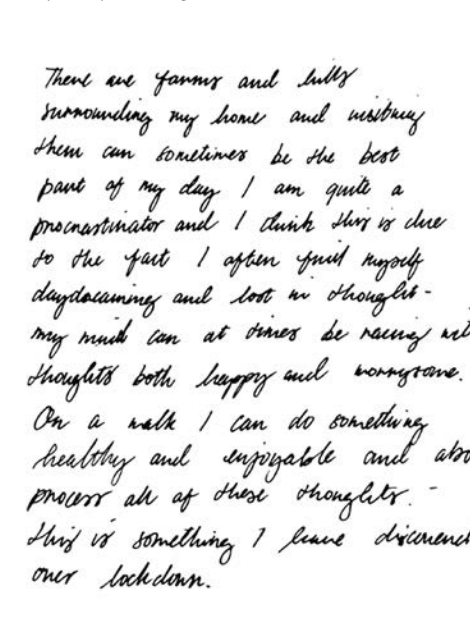 There are farms and hills
surrounding my home and visiting
them can sometimes be the best
part of my day I am quite a
procrastinator and I think this is due
to the fact I often find myself
daydreaming and lost in thought -
my mind can at times be racing wit
thoughts both happy and worrysome.
On a walk I can do something
healthy and enjoyable and also
process all of these thoughts. -
this is something I have discovered
over lockdown.